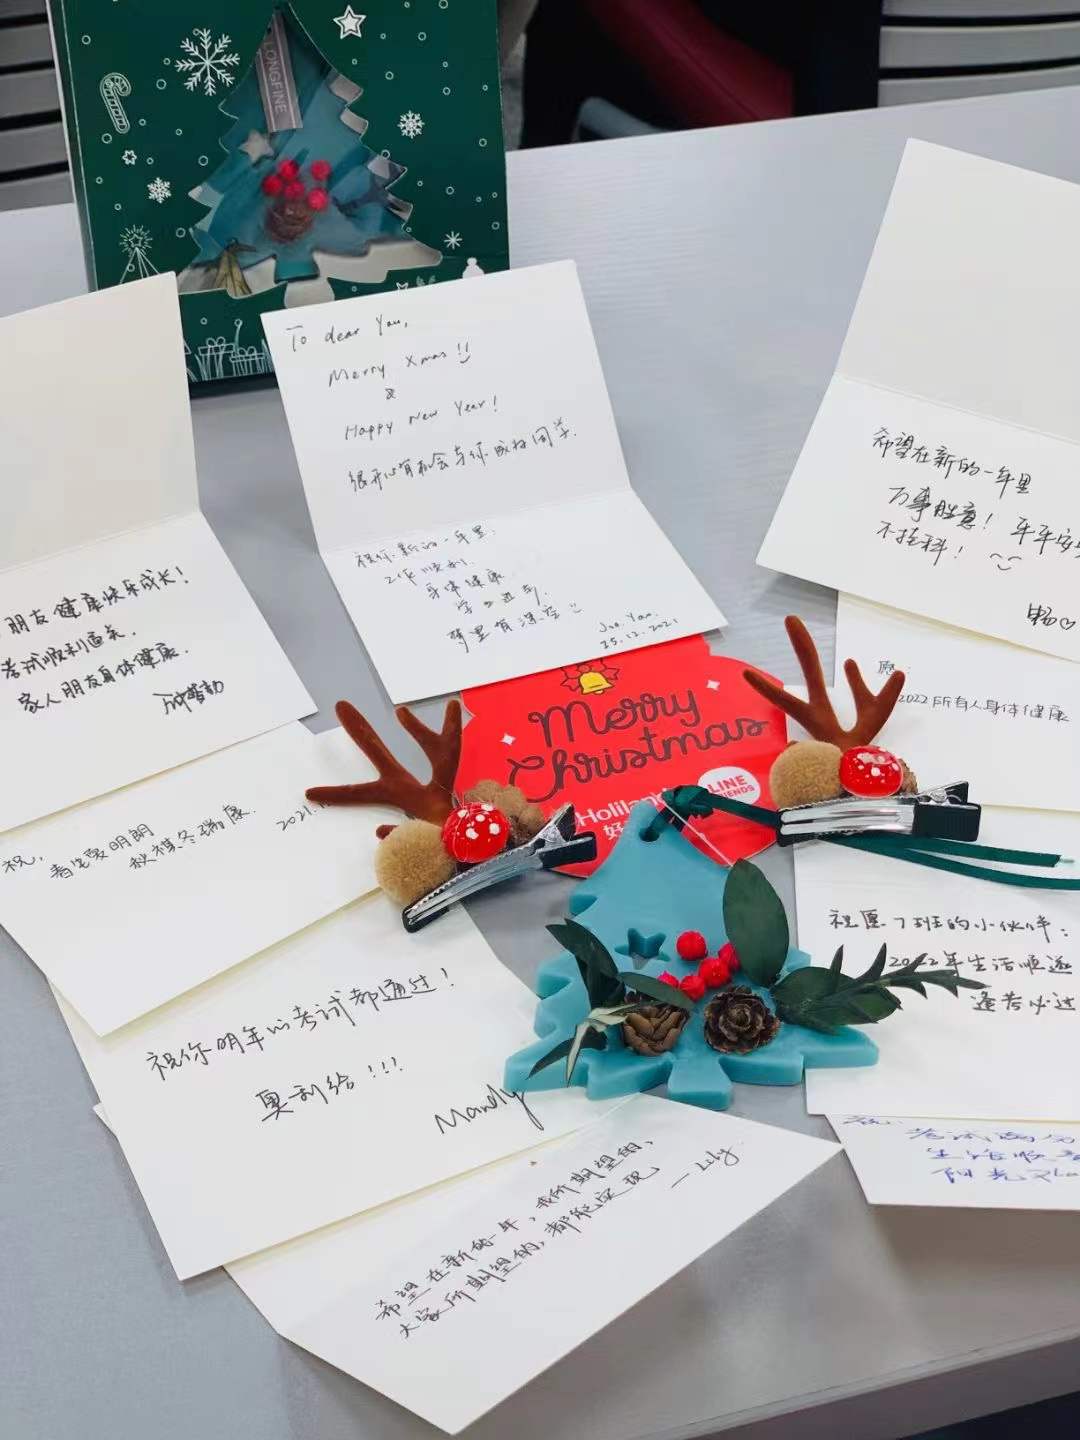 LONGFINE
To dear You,
Merry Xmas!!
&
Happy New Year!
很开心有机会与你成为同学.
祝你新的一年里.
工作顺利.
身体健康
学业进步.
梦里有深空
25.12.2021
希望在新的一年里
万事胜意！平平安
不挂科！
畅
朋友健康快乐成长！
考试顺利通关.
家人朋友身体健康.
Merry
Christmas
LINE
FRIENDS
Holiland
好
愿:
2022所有人身体健康
祝,
春安夏明朗
秋祺冬瑞康.
2021.
祝愿7班的小伙伴:
2022年生活顺遂
逢考必过
祝你明年的考试都通过！
奥利给!!!
Mandy
祝:
考试高分
生活顺
阳光
希望在新的一年,我所期望的,
大家所期望的,都能实现
—Lily